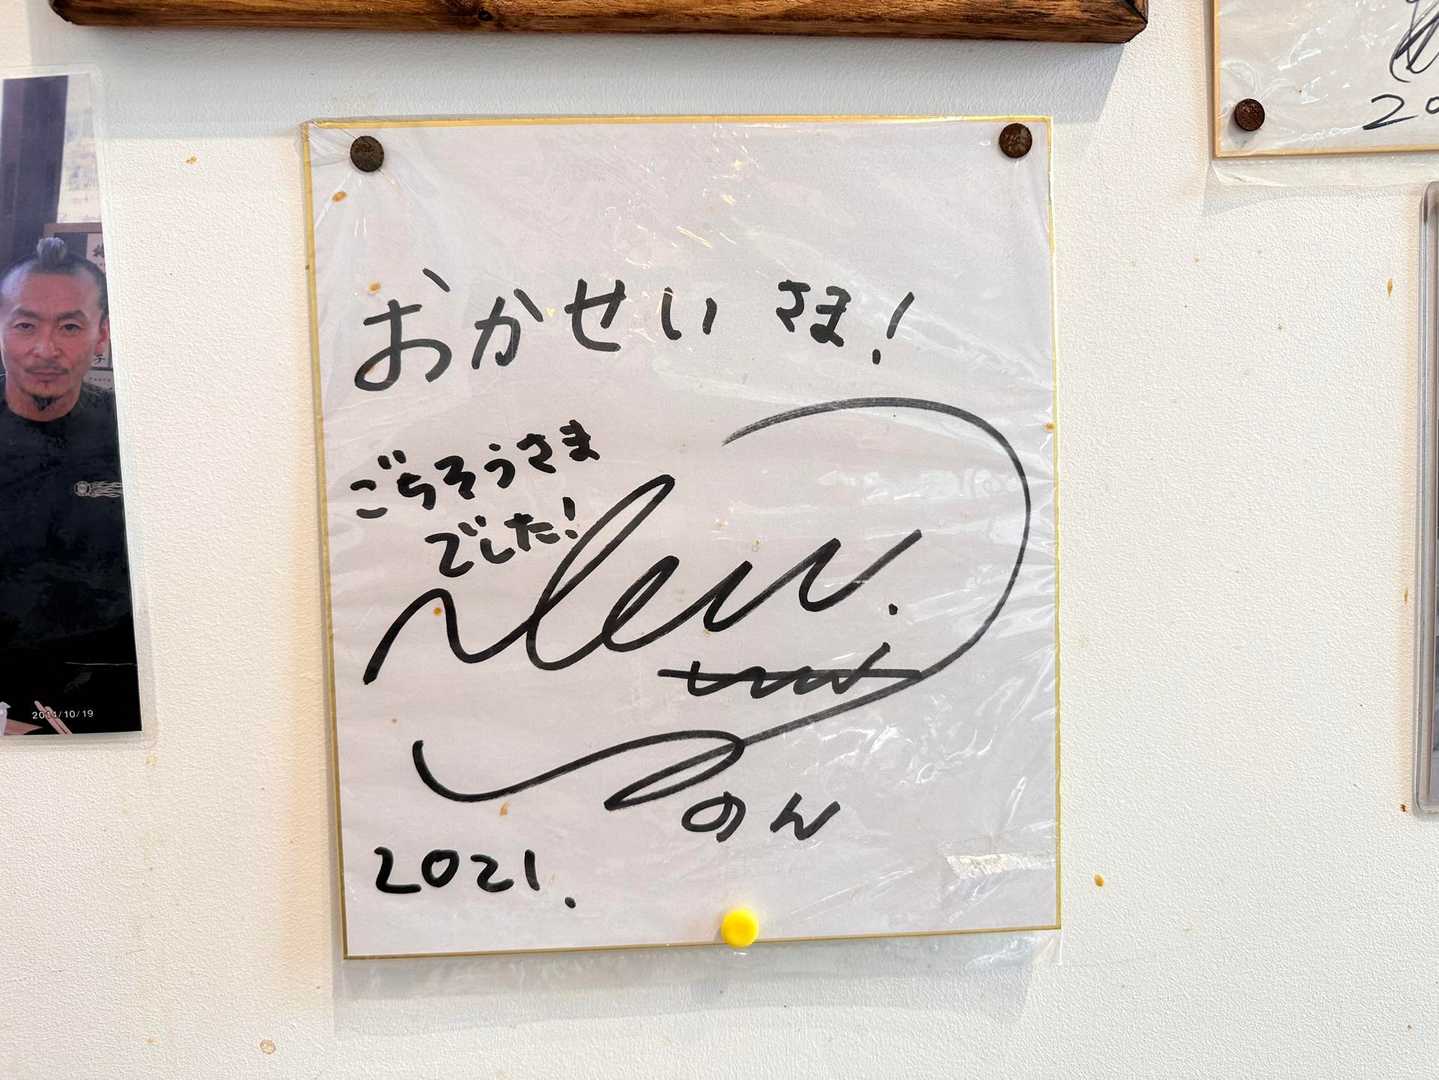 おかせい さま!
ごちそうさま
でした!
のん
2021.
2011/10/19